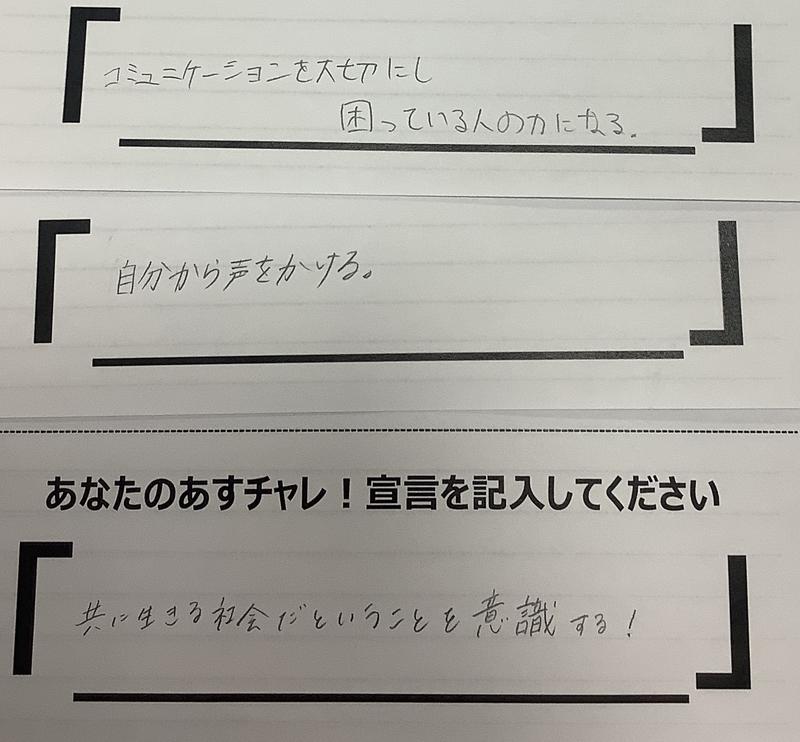 コミュニケーションを大切にし
困っている人の力になる。
自分から声をかける。
あなたのあすチャレ！宣言を記入してください
共に生きる社会だということを意識する！